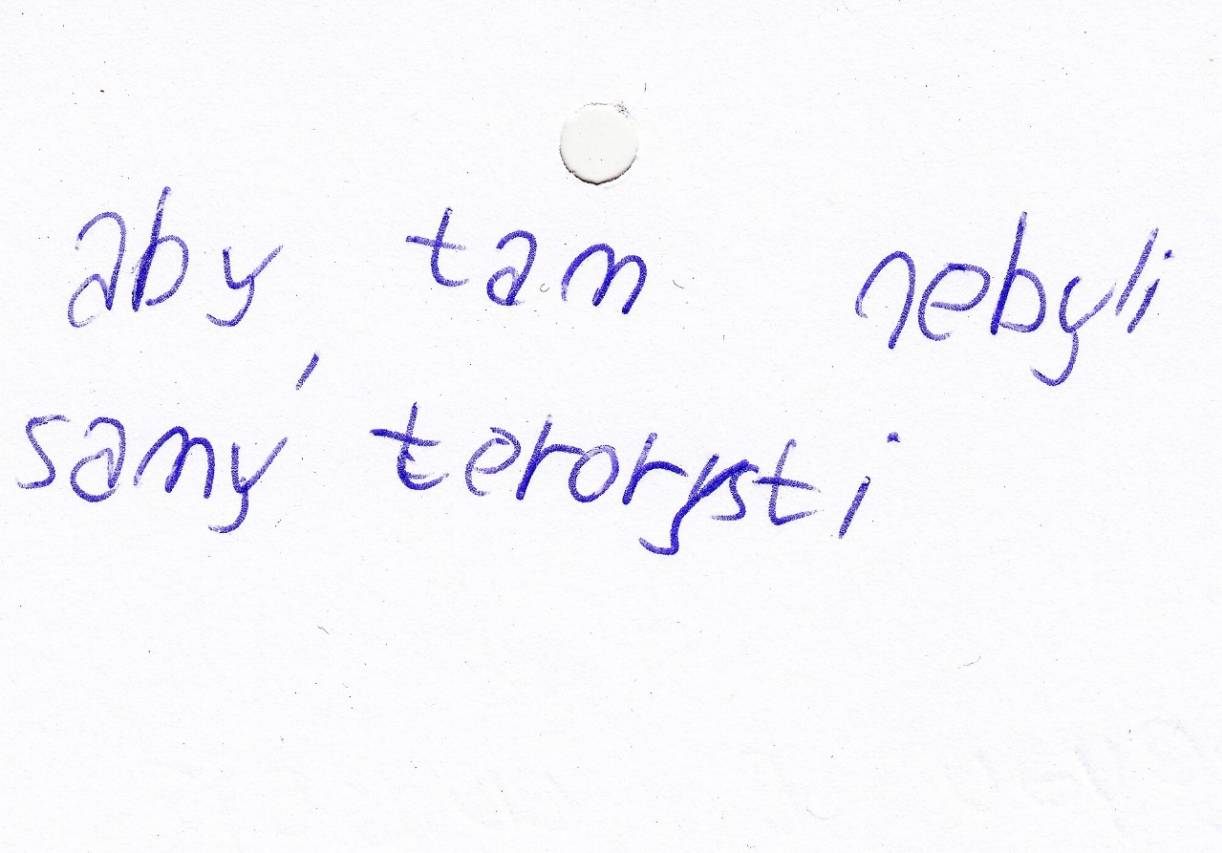 aby tam nebyli
samý terorysti